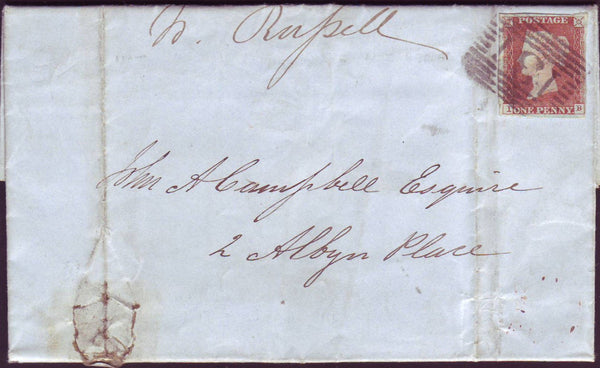 W. Russell
POSTAGE
B
ONE PENNY
John A Campbell Esquire
2 Albyn Place